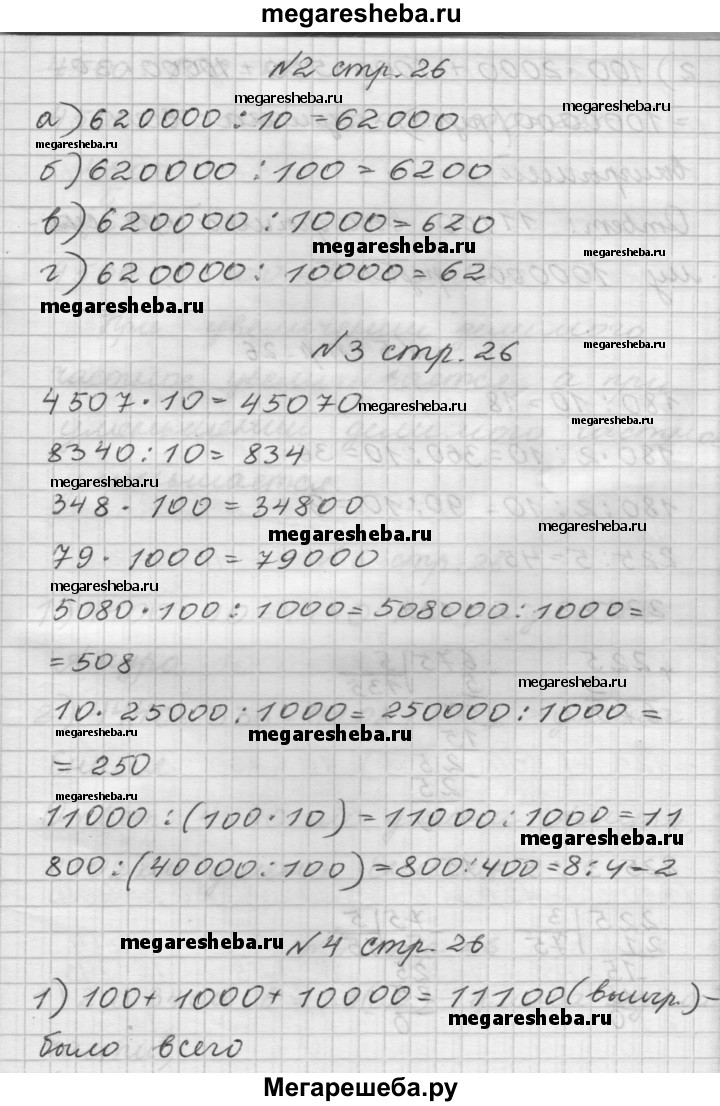 megaresheba.ru
№2 стр. 26
megaresheba.ru
megaresheba.ru
а) 620000 : 10 = 62000
megaresheba.ru
б) 620000 : 100 = 6200
в) 620000 : 1000 = 620
megaresheba.ru
megaresheba.ru
г) 620000 : 10000 = 62
megaresheba.ru
№3 стр. 26
megaresheba.ru
4507 · 10 = 45070
megaresheba.ru
8340 : 10 = 834
megaresheba.ru
348 · 100 = 34800
megaresheba.ru
megaresheba.ru
79 · 1000 = 79000
megaresheba.ru
5080 · 100 : 1000 = 508000 : 1000 =
= 508
megaresheba.ru
10 · 25000 : 1000 = 250000 : 1000 =
megaresheba.ru
megaresheba.ru
= 250
megaresheba.ru
11000 : (100 · 10) = 11000 : 1000 = 11
megaresheba.ru
800 : (40000 : 100) = 800 : 400 = 8 : 4 = 2
megaresheba.ru
№4 стр. 26
1) 100 + 1000 + 10000 = 11100 (выигр.) –
megaresheba.ru
было всего
Мегарешеба.ру